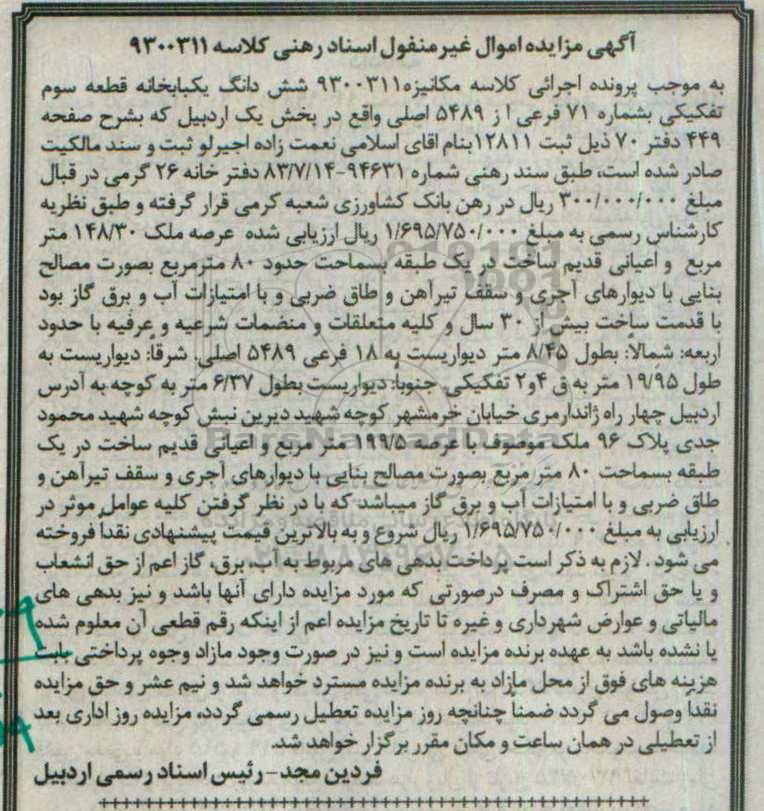 آگهی مزایده اموال غیر منقول اسناد رهنی کلاسه ۹۳۰۰۳۱۱
به موجب پرونده اجرائی کلاسه مکانیزه۹۳۰۰۳۱۱ شش دانگ یکبابخانه قطعه سوم
تفکیکی بشماره ۷۱ فرعی از ۵۴۸۹ اصلی واقع در بخش یک اردبیل که بشرح صفحه
۴۴۹ دفتر ۷۰ ذیل ثبت ۱۲۸۱۱بنام اقای اسلامی نعمت زاده اجیرلو ثبت و سند مالکیت
صادر شده است، طبق سند رهنی شماره ۹۴۶۳۱-۸۳/۷/۱۴ دفتر خانه ۲۶ گرمی در قبال
مبلغ ۳۰۰/۰۰۰/۰۰۰ ریال در رهن بانک کشاورزی شعبه گرمی قرار گرفته و طبق نظریه
کارشناس رسمی به مبلغ ۱/۶۹۵/۷۵۰/۰۰۰ ریال ارزیابی شده عرصه ملک ۱۴۸/۳۰ متر
مربع و اعیانی قدیم ساخت در یک طبقه بسماحت حدود ۸۰ مترمربع بصورت مصالح
بنایی با دیوارهای آجری و سقف تیرآهن و طاق ضربی و با امتیازات آب و برق گاز بود
با قدمت ساخت بیش از ۳۰ سال و کلیه متعلقات و منضمات شرعیه و عرفیه با حدود
اربعه: شمالاً: بطول ۸/۴۵ متر دیواریست به ۱۸ فرعی ۵۴۸۹ اصلی. شرقاً: دیواریست به
طول ۱۹/۹۵ متر به ق ۴و۲ تفکیکی. جنوباً: دیواریست بطول ۶/۳۷ متر به کوچه به آدرس
اردبیل چهار راه ژاندارمری خیابان خرمشهر کوچه شهید دیرین نبش کوچه شهید محمود
جدی پلاک ۹۶ ملک موصوف با عرصه ۱۹۹/۵ متر مربع و اعیانی قدیم ساخت در یک
طبقه بسماحت ۸۰ متر مربع بصورت مصالح بنایی با دیوارهای آجری و سقف تیرآهن و
طاق ضربی و با امتیازات آب و برق گاز میباشد که با در نظر گرفتن کلیه عوامل موثر در
ارزیابی به مبلغ ۱/۶۹۵/۷۵۰/۰۰۰ ریال شروع و به بالاترین قیمت پیشنهادی نقداً فروخته
می شود. لازم به ذکر است پرداخت بدهی های مربوط به آب، برق، گاز اعم از حق انشعاب
و یا حق اشتراک و مصرف درصورتی که مورد مزایده دارای آنها باشد و نیز بدهی های
مالیاتی و عوارض شهرداری و غیره تا تاریخ مزایده اعم از اینکه رقم قطعی آن معلوم شده
یا نشده باشد به عهده برنده مزایده است و نیز در صورت وجود مازاد وجوه پرداختی بابت
هزینه های فوق از محل مازاد به برنده مزایده مسترد خواهد شد و نیم عشر و حق مزایده
نقداً وصول می گردد ضمناً چنانچه روز مزایده تعطیل رسمی گردد، مزایده روز اداری بعد
از تعطیلی در همان ساعت و مکان مقرر برگزار خواهد شد.
فردین مجد- رئیس اسناد رسمی اردبیل